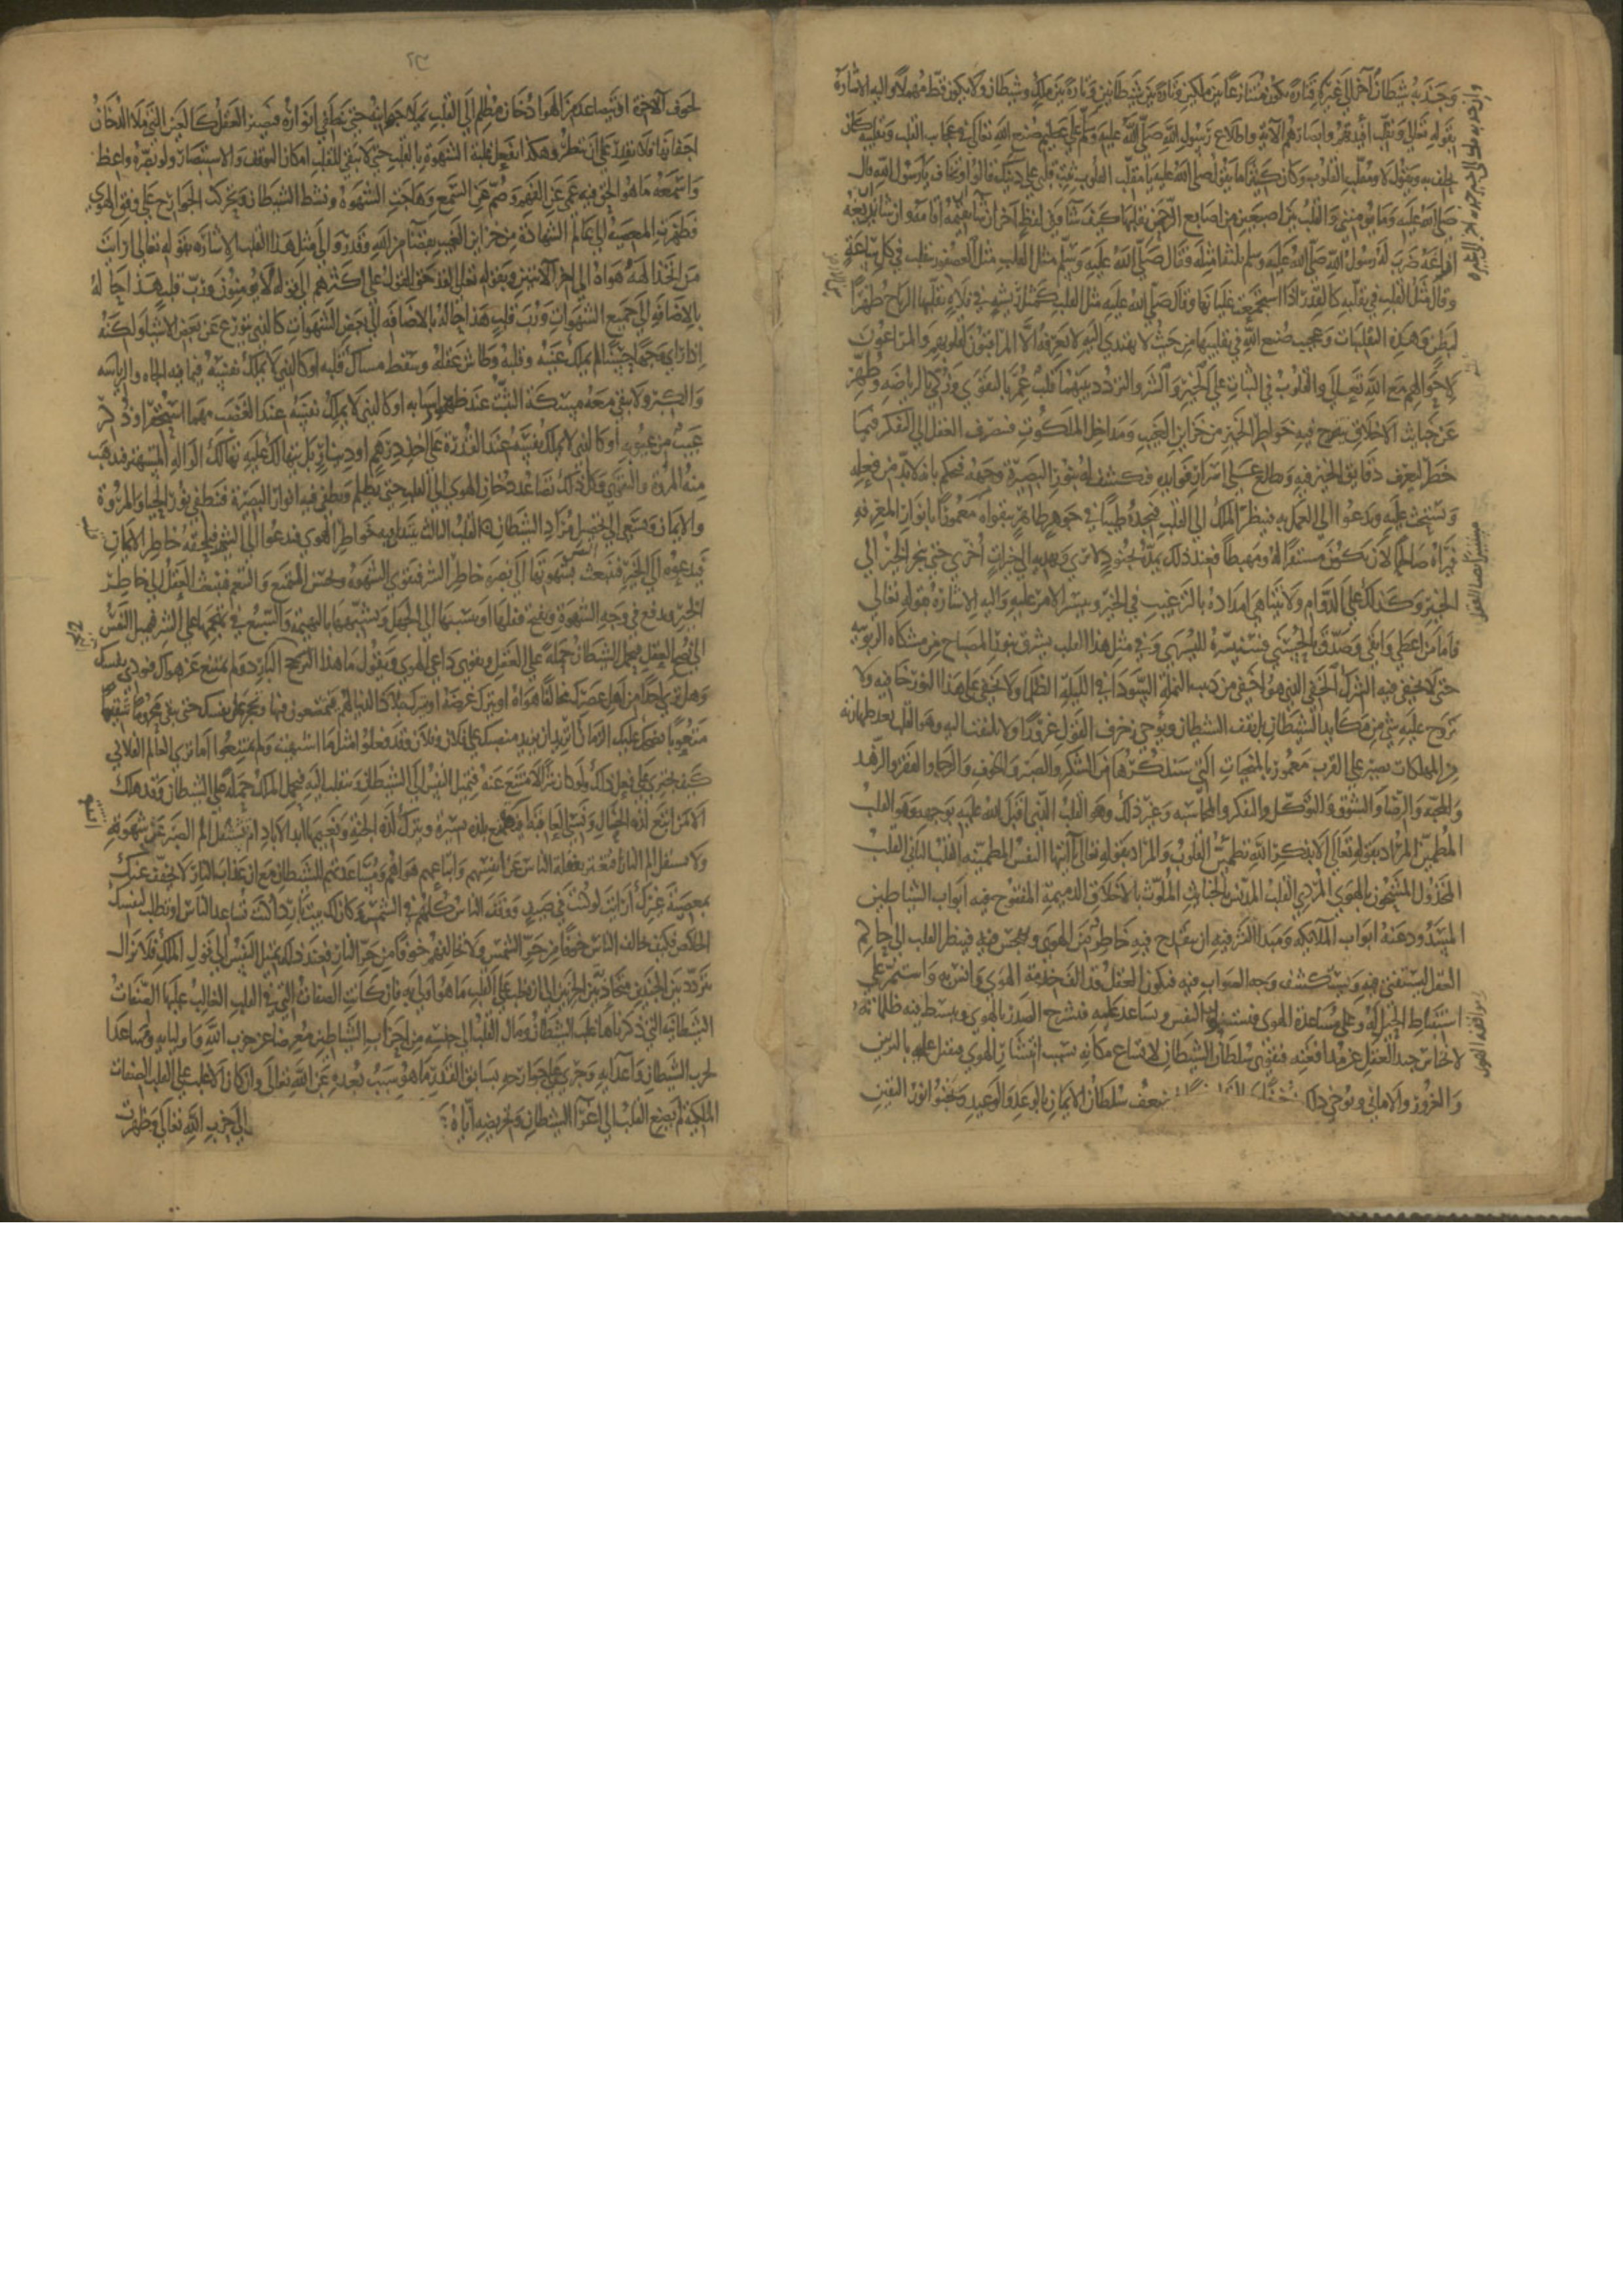 وجذبه شيطان آخر الى غيره فتارة يكون متنازعا بين ملكين وتارة بين شيطانين وتارة بين ملك وشيطان ولا يكون قط مهملا واليه الاشارة
بقوله تعالى ونقلب افئدتهم وابصارهم الآية ولاطلاع رسول الله صلى الله عليه وسلم على عظيم صنع الله تعالى في عجايب القلب وتقلبه كان
يحلف به ويقول لا ومقلب القلوب وكان كثيرا ما يقول صلى الله عليه يا مقلب القلوب ثبت قلبي على دينك قالوا اوتخاف يا رسول الله قال
صلى الله عليه وما يؤمنني والقلب بين اصبعين من اصابع الرحمن يقلبها كيف شآ وفي لفظ آخر ان شآ ان يقيمه اقامه وان شآ ان يزيغه
ازاغه ضرب له رسول الله صلى الله عليه وسلم ثلثة امثلة وقال صلى الله عليه وسلم مثل القلب مثل العصفور يتقلب في كل ساعة
وقال مثل القلب في تقلبه كالقدر اذا استجمعت غليانها وقال صلى الله عليه مثل القلب كمثل ريشة في فلاة تقلبها الرياح ظهرا
لبطن وهذه التقلبات وعجيب صنع الله في تقليبها من حيث لا يهتدى اليه لا يعرفه الا المراقبون لقلوبهم والمراعون
لاحوالهم مع الله تعالى والقلوب في الثبات على الخير والشر والتردد بينهما قلب عمر بالتقوى وزكى بالرياضة وطهر
عن خبايث الاخلاق ينقدح فيه خواطر الخير من خزاين الغيب ومداخل الملكوت فينصرف العقل الى التفكر فيما
خطر ليعرف دقايق الخير فيه ويطلع على اسرار فوايده فينكشف له بنور البصيرة وجهه فيحكم بانه لا بد من فعله
ويستحث عليه ويدعوا الى العمل به فينظر الملك الى القلب فيجده طيبا في جوهره طاهرا بتقواه معمورا بانوار المعرفة
فيراه صالحا لان يكون مستقرا له ومهبطا فعند ذلك يمده بجنود لا ترى ويهديه الى خيرات اخرى حتى ينجر الخير الى
الخير وكذلك على الدوام ولا يتناهى امداده بالترغيب في الخير وتيسير الامر عليه واليه الاشارة بقوله تعالى
فاما من اعطى واتقى وصدق بالحسنى فسنيسره لليسرى وفي مثل هذا القلب يشرق نور المصباح من مشكاة الربوبية
حتى لا يخفى فيه الشرك الخفي الذي هو اخفى من دبيب النملة السودآ في الليلة الظلمآ ولا يخفى على هذا النور خافية ولا
يروج عليه شي من مكايد الشيطان بل يقف الشيطان ويوحي زخرف القول غرورا ولا يلتفت اليه وهو القلب بعد طهارته
من المهلكات يصير على القرب معمورا بالمنجيات التي سنذكرها من الشكر والصبر والخوف والرجا والفقر والزهد
والمحبة والرضا والشوق والتوكل والتفكر والمحاسبة وغير ذلك وهو القلب الذي اقبل الله عليه بوجهه وهو القلب
المطمين المراد بقوله تعالى الا بذكر الله تطمين القلوب والمراد بقوله تعالى يا ايتها النفس المطمينة القلب الثاني القلب
المخذول المشحون بالهوى المردي القلب المدنس بالخبايث الملوث بالاخلاق الذميمة المفتوح فيه ابواب الشياطين
المسدود عنه ابواب الملايكة ومبدا الشر فيه ان ينقدح فيه خاطر من الهوى ويهجس فيه فينظر القلب الى حاكم
العقل ليستفتي فيه ويستكشف وجه الصواب فيه فيكون العقل قد الف خدمة الهوى وانس به واستمر على
استنباط الحيل له وعلى مساعدة الهوى فتستولي النفس وتساعد عليه فينشرح الصدر بالهوى وينبسط فيه ظلماته
لانخناس جند العقل عن مدافعته فيقوى سلطان الشيطان لاتساع مكانه بسبب انتشار الهوى فيقبل عليه بالتزيين
والغرور والاماني ويوحي بذلك زخرفا ضعف سلطان الايمان بالوعد والوعيد ويخبوا نور اليقين
لخوف الآخرة اذ يتصاعد من الهوا دخان مظلم الى القلب يملا جوانبه حتى تنطفي انواره فيصير العقل كالعين التي ملا الدخان
اجفانها فلا يقدر على ان ينظر وهكذا تفعل غلبة الشهوة بالقلب حتى لا يبقى للقلب امكان التوقف والاستبصار ولو بصره واعظ
واسمعه ما هو الحق فيه عمي عن الفهم وصم عن السمع وهاجت الشهوة ونشط الشيطان وتحركت الجوارح على وفق الهوى
فظهرت المعصية الى عالم الشهادة من خزاين الغيب بقضآ من الله وقدر والى مثل هذا القلب الاشارة بقوله تعالى ارايت
من اتخذ الهه هواه الى اخر الآيتين وبقوله تعالى لقد حق القول على اكثرهم الى قوله لا يؤمنون فرب قلب هذا حاله
بالاضافة الى جميع الشهوات ورب قلب هذا حاله بالاضافة الى بعض الشهوات كالذي يتورع عن بعض الاشيا ولكنه
اذا راى وجها حسنا لم يملك عينه وقلبه وطاش عقله وسقط مساك قلبه او كالذي لا يملك نفسه فيما فيه الجاه والرياسة
والكبر ولا يبقى معه مسكة التثبت عند ظهور اسبابه او كالذي لا يملك نفسه عند الغضب مهما استحقر او ذكر
عيب من عيوبه او كالذي لا يملك نفسه عند القدرة على اخذ درهم او دينار بل يتهالك عليه تهالك الواله المستهتر فيذهب
منه المروة والتقوى وكل ذلك لتصاعد دخان الهوى الى القلب حتى يظلم وتطفي فيه انوار البصيرة فينطفي نور الحيا والمروة
والايمان ويسعى الى تحصيل مراد الشيطان القلب الثالث يبتدي فيه خواطر الهوى فيدعوا الى الشر فيلحقه خاطر الايمان
فيدعوه الى الخير فتنبعث النفس بشهوتها الى نصرة خاطر الشر فتقوى الشهوة وتحسن التمتع والتنعم فينبعث العقل الى خاطر
الخير ويدفع في وجه الشهوة ويقبح فعلها وينسبها الى الجهل ويشبهها بالبهيمة والسبع في تهجمها على الشر فتميل النفس
الى نصح العقل فيحمل الشيطان حملة على العقل ويقوي داعي الهوى ويقول ما هذا التحرج البارد ولم تمتنع عن هواك فتوذي نفسك
وهل ترى احدا من اهل عصرك مخالفا هواه او يترك غرضه افتترك ملاذ الدنيا لهم فيتمتعون منها وتحجر على نفسك حتى تبقى محروما شقيا
متعوبا يضحك عليك اهل الزمان تريد ان يزيد منصبك على فلان وفلان وقد فعلوا مثل ما اشتهيت ولم يمتنعوا اما ترى العالم الفلاني
كيف يجتري على فعل ذلك ولو كان شرا لامتنع عنه فتميل النفس الى الشيطان وتنقلب اليه فيحمل الملك حملة على الشيطان وقد هلك
الا من اتبع لذة الحال ونسي العاقبة افتقنع بلذة يسيرة وتترك لذة الجنة ونعيمها ابد الاباد ام تستثقل الم الصبر عن شهوته
ولا تستثقل الم النار اتغتر بغفلة الناس عن انفسهم واتباعهم هواهم ومساعدتهم للشيطان مع ان عذاب النار لا يخفف عنك
بمعصية غيرك ارايت لو كنت في صيف ووقف الناس كلهم في الشمس وكان لك بيت بارد اكنت تساعد الناس او تطلب لنفسك
الخلاص فكيف تخالف الناس خوفا من حر الشمس ولا تخالفهم خوفا من حر النار فعند ذلك تميل النفس الى قول الملك فلا يزال
يتردد بين الجندين متجاذبا بين الحزبين الى ان يغلب على القلب ما هو اولى به فان كانت الصفات التي في القلب الغالب عليها الصفات
الشيطانية التي ذكرناها غلب الشيطان ومال القلب الى جنسه من احزاب الشياطين معرضا عن حزب الله واوليايه ومساعدا
لحزب الشيطان واعدايه وجرى على جوارحه بسابق القدر ما هو سبب بعده عن الله تعالى وان كان الاغلب على القلب الصفات
الملكية لم يصغ القلب الى اغوآ الشيطان وتحريضه اياه الى حزب الله تعالى وظهرت